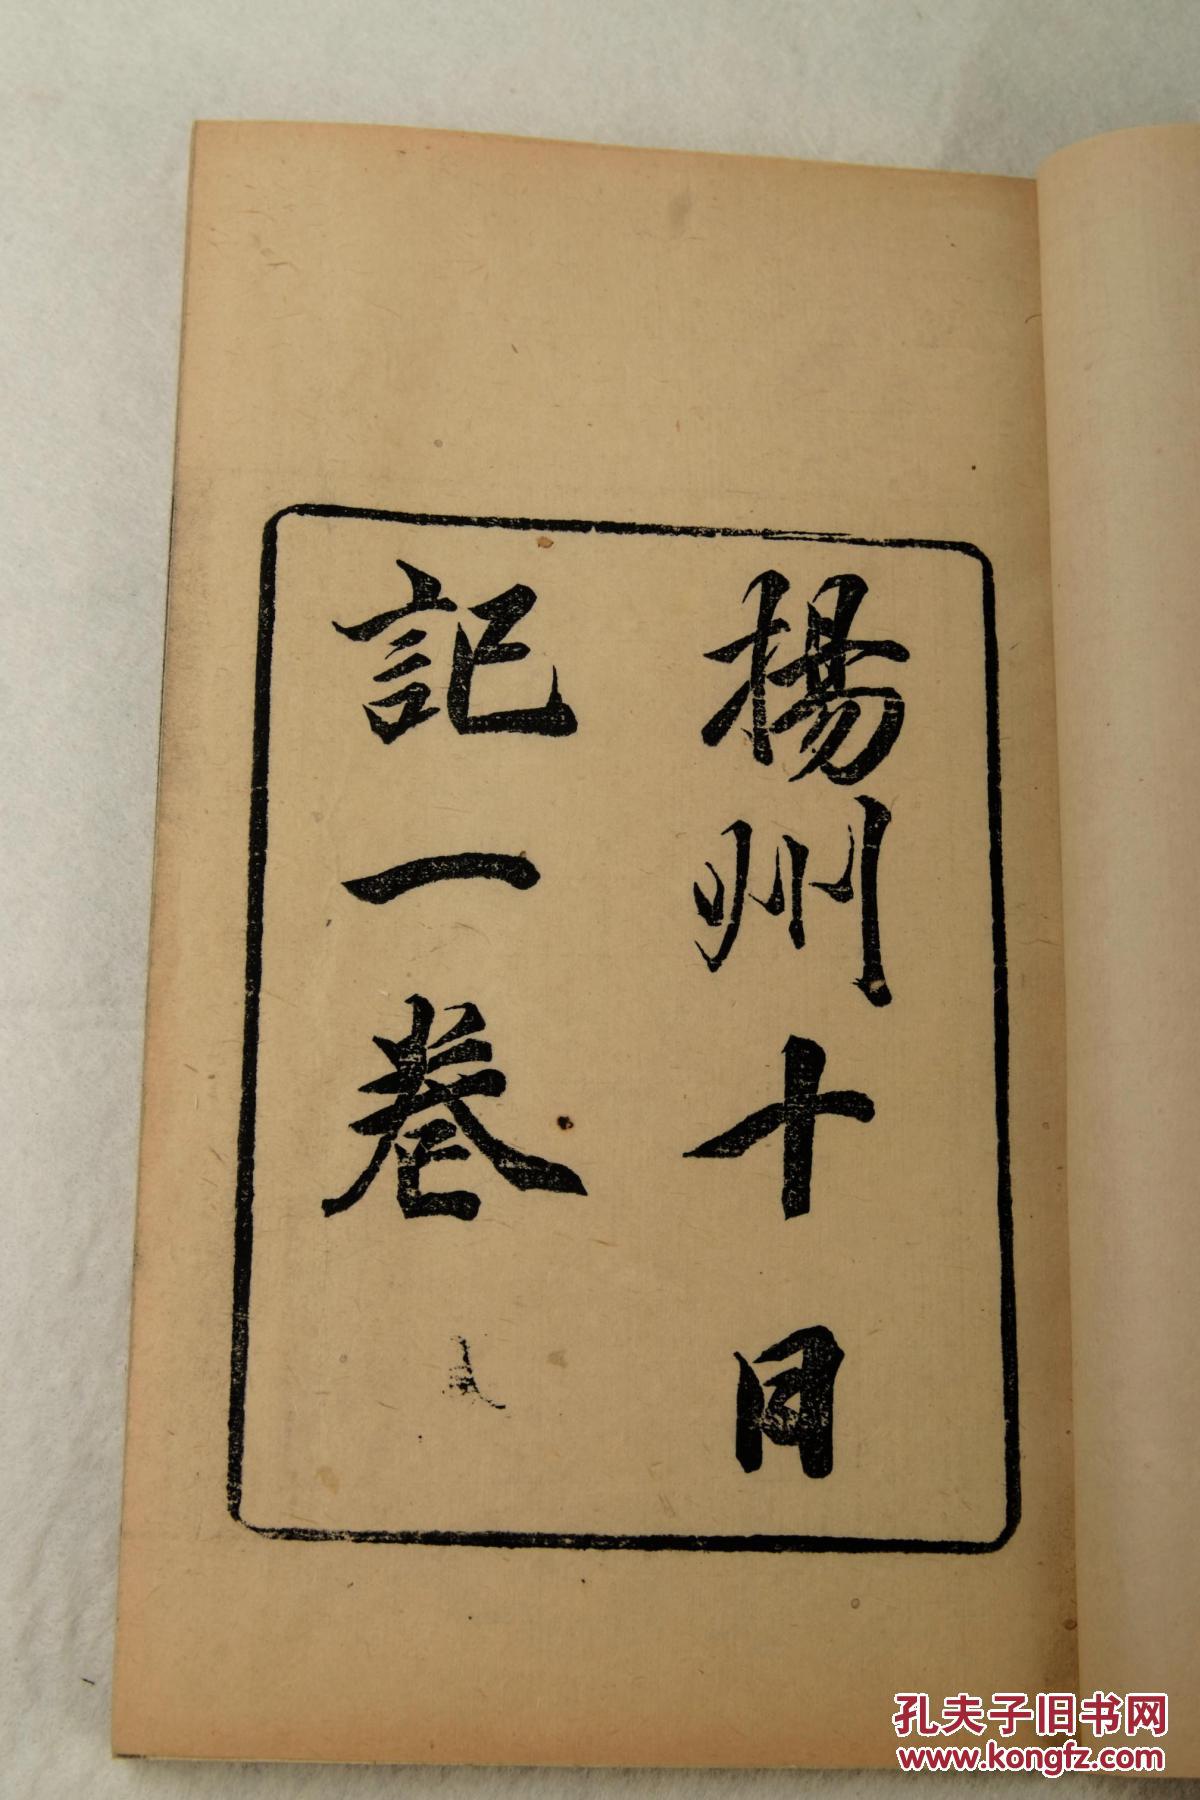 揚州十日
記一卷
孔夫子旧书网
www.kongfz.com